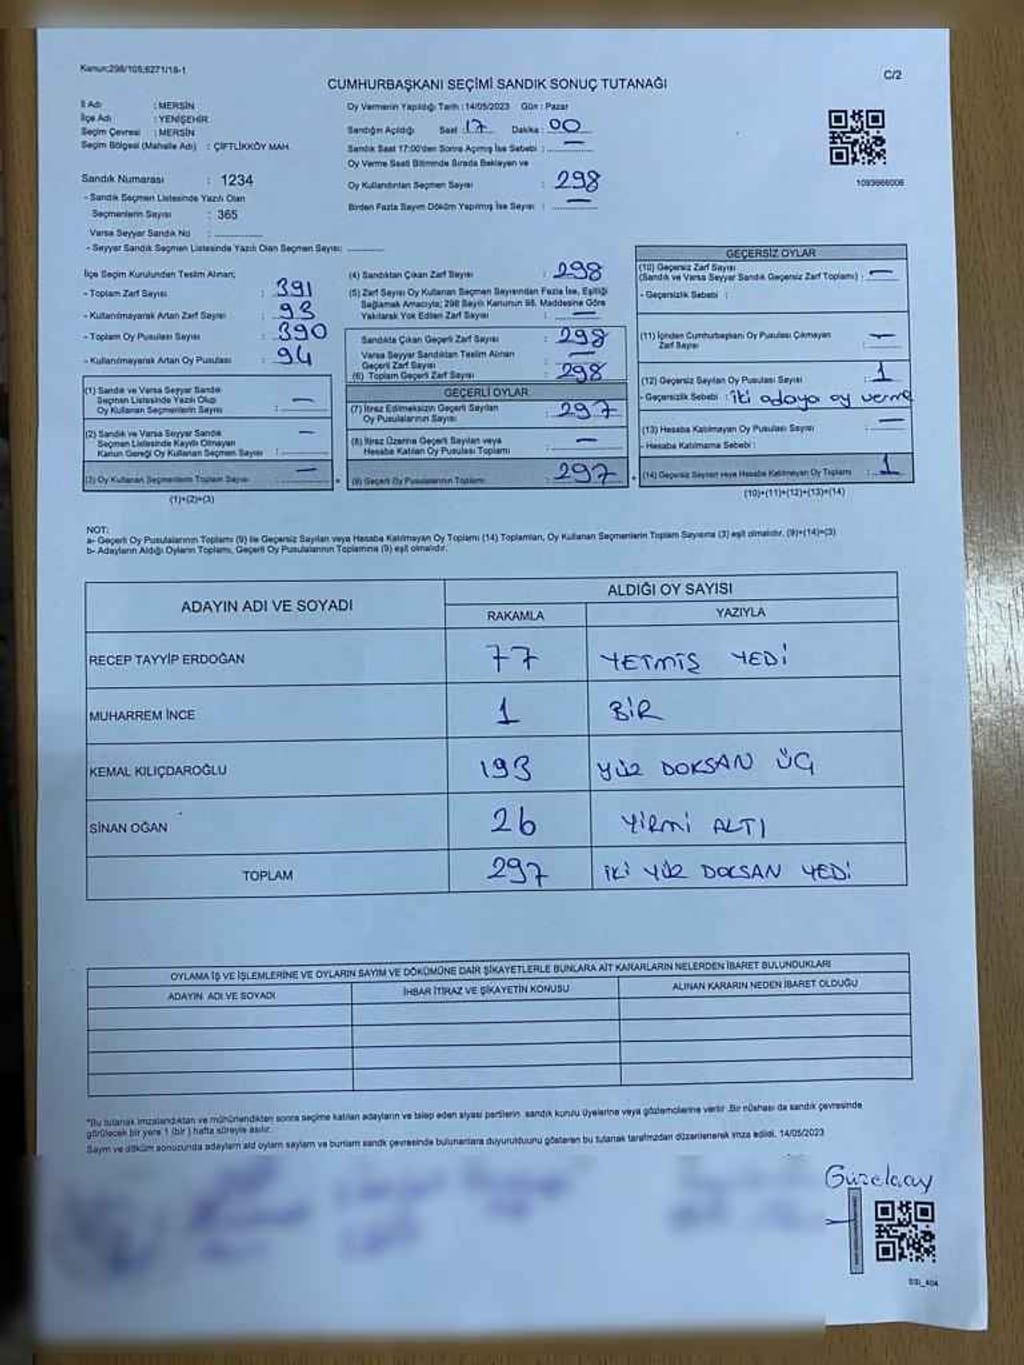 Kanun:298/105;6271/18-1
C/2
CUMHURBAŞKANI SEÇİMİ SANDIK SONUÇ TUTANAĞI
İl Adı : MERSİN
İlçe Adı : YENİŞEHİR
Seçim Çevresi : MERSİN
Seçim Bölgesi (Mahalle Adı) : ÇİFTLİKKÖY MAH.
Sandık Numarası : 1234
- Sandık Seçmen Listesinde Yazılı Olan
Seçmenlerin Sayısı : 365
Varsa Seyyar Sandık No :
- Seyyar Sandık Seçmen Listesinde Yazılı Olan Seçmen Sayısı:
Oy Vermenin Yapıldığı Tarih : 14/05/2023 Gün : Pazar
Sandığın Açıldığı Saat : 17 Dakika : 00
Sandık Saat 17:00'den Sonra Açılmış İse Sebebi : —
Oy Verme Saati Bitiminde Sırada Bekleyen ve
Oy Kullandırılan Seçmen Sayısı : 298
Birden Fazla Sayım Döküm Yapılmış İse Sayısı : —
1093666006
İlçe Seçim Kurulundan Teslim Alınan;
- Toplam Zarf Sayısı : 391
- Kullanılmayarak Artan Zarf Sayısı : 93
- Toplam Oy Pusulası Sayısı : 390
- Kullanılmayarak Artan Oy Pusulası : 94
(1) Sandık ve Varsa Seyyar Sandık
Seçmen Listesinde Yazılı Olup
Oy Kullanan Seçmenlerin Sayısı : —
(2) Sandık ve Varsa Seyyar Sandık
Seçmen Listesinde Kayıtlı Olmayan
Kanun Gereği Oy Kullanan Seçmen Sayısı : —
(3) Oy Kullanan Seçmenlerin Toplam Sayısı : —
(1)+(2)=(3)
(4) Sandıktan Çıkan Zarf Sayısı : 298
(5) Zarf Sayısı Oy Kullanan Seçmen Sayısından Fazla İse, Eşitliği
Sağlamak Amacıyla; 298 Sayılı Kanunun 98. Maddesine Göre
Yakılarak Yok Edilen Zarf Sayısı : —
Sandıkta Çıkan Geçerli Zarf Sayısı : 298
Varsa Seyyar Sandıktan Teslim Alınan
Geçerli Zarf Sayısı : —
(6) Toplam Geçerli Zarf Sayısı : 298
GEÇERLİ OYLAR
(7) İtiraz Edilmeksizin Geçerli Sayılan
Oy Pusulalarının Sayısı : 297
(8) İtiraz Üzerine Geçerli Sayılan veya
Hesaba Katılan Oy Pusulası Toplamı : —
(9) Geçerli Oy Pusulalarının Toplamı : 297
GEÇERSİZ OYLAR
(10) Geçersiz Zarf Sayısı
(Sandık ve Varsa Seyyar Sandık Geçersiz Zarf Toplamı) : —
- Geçersizlik Sebebi :
(11) İçinden Cumhurbaşkanı Oy Pusulası Çıkmayan
Zarf Sayısı : —
(12) Geçersiz Sayılan Oy Pusulası Sayısı : 1
- Geçersizlik Sebebi : iki adaya oy verme
(13) Hesaba Katılmayan Oy Pusulası Sayısı : —
- Hesaba Katılmama Sebebi :
(14) Geçersiz Sayılan veya Hesaba Katılmayan Oy Toplamı : 1
(10)+(11)+(12)+(13)=(14)
NOT:
a- Geçerli Oy Pusulalarının Toplamı (9) ile Geçersiz Sayılan veya Hesaba Katılmayan Oy Toplamı (14) Toplamları, Oy Kullanan Seçmenlerin Toplam Sayısına (3) eşit olmalıdır. (9)+(14)=(3)
b- Adayların Aldığı Oyların Toplamı, Geçerli Oy Pusulalarının Toplamına (9) eşit olmalıdır.
ADAYIN ADI VE SOYADI
ALDIĞI OY SAYISI
RAKAMLA YAZIYLA
RECEP TAYYİP ERDOĞAN 77 YETMİŞ YEDİ
MUHARREM İNCE 1 BİR
KEMAL KILIÇDAROĞLU 193 YÜZ DOKSAN ÜÇ
SİNAN OĞAN 26 YİRMİ ALTI
TOPLAM 297 İKİ YÜZ DOKSAN YEDİ
OYLAMA İŞ VE İŞLEMLERİNE VE OYLARIN SAYIM VE DÖKÜMÜNE DAİR ŞİKAYETLERLE BUNLARA AİT KARARLARIN NELERDEN İBARET BULUNDUKLARI
ADAYIN ADI VE SOYADI İHBAR İTİRAZ VE ŞİKAYETİN KONUSU ALINAN KARARIN NEDEN İBARET OLDUĞU
*Bu tutanak imzalandıktan ve mühürlendikten sonra seçime katılan adayların ve talep eden siyasi partilerin sandık kurulu üyelerine veya gözlemcilerine verilir .Bir nüshası da sandık çevresinde
görülecek bir yere 1 (bir ) hafta süreyle asılır.
Sayım ve döküm sonucunda adayların aldığı oyların sayıları ve bunların sandık çevresinde bulunanlara duyurulduğunu gösteren bu tutanak tarafımızdan düzenlenerek imza edildi. 14/05/2023
Güzelçay
SSI_404